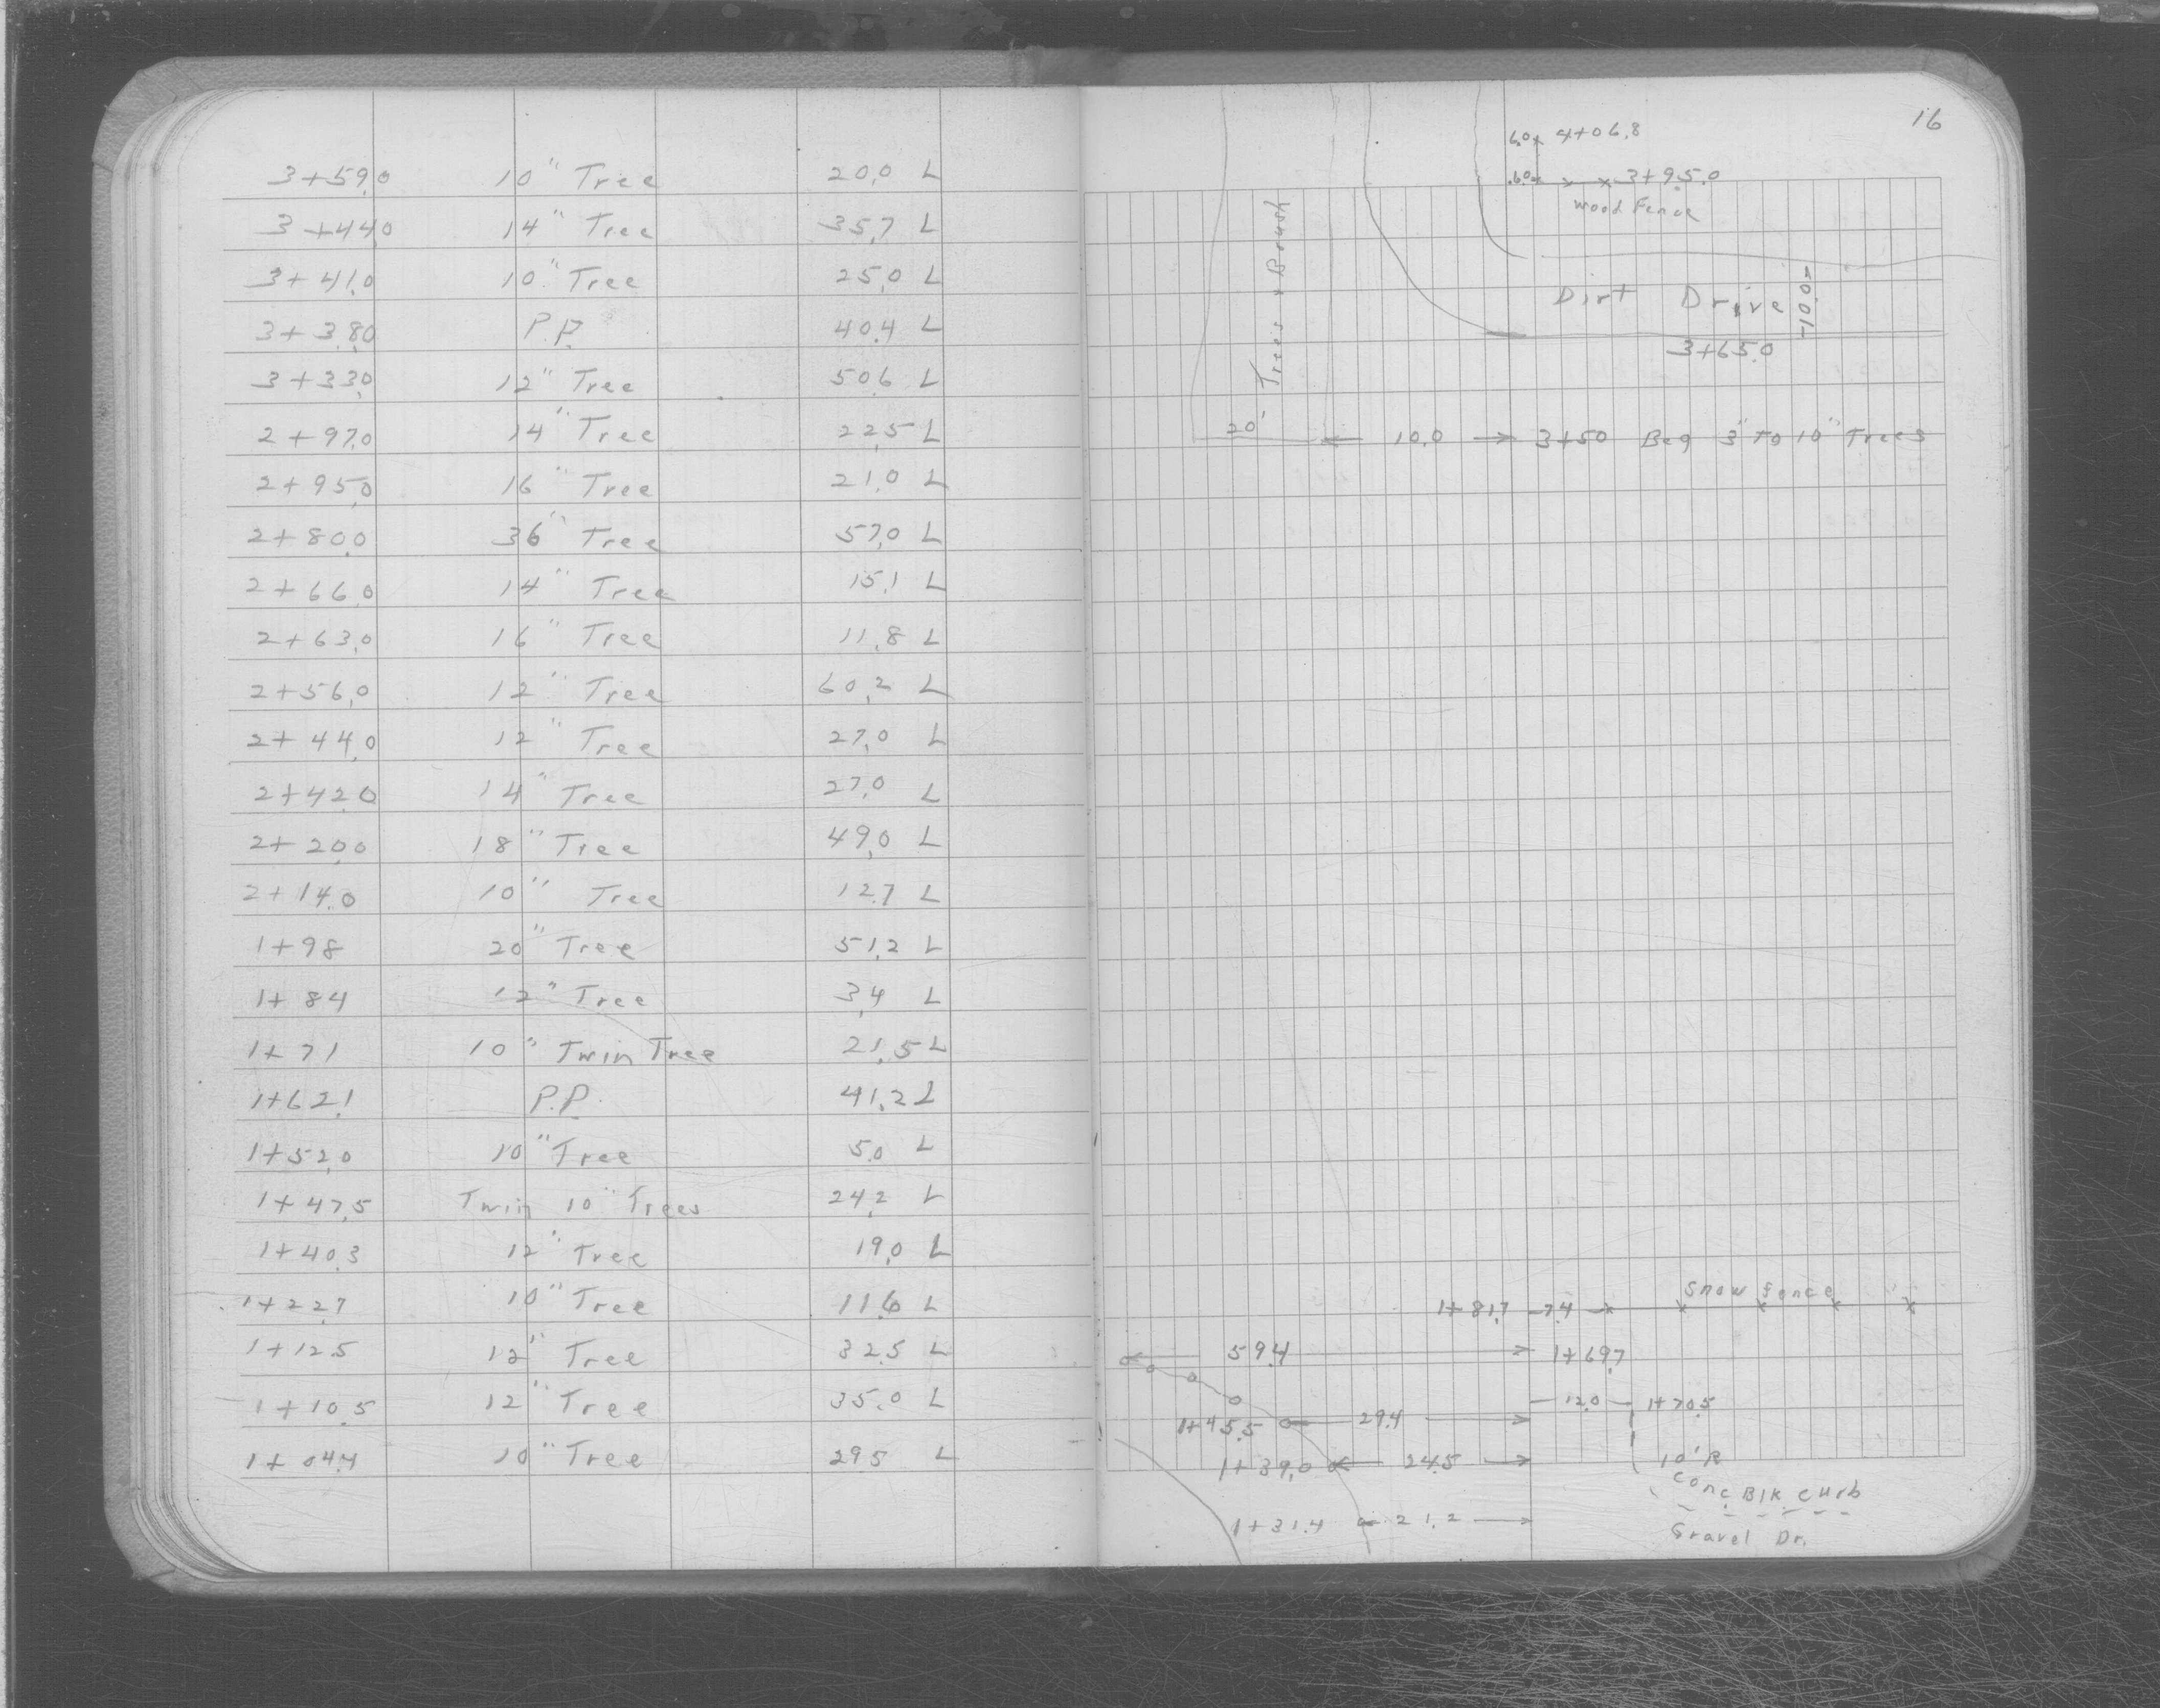 3+59.0 10" Tree 20.0 L
3+44.0 14" Tree 35.7 L
3+41.0 10" Tree 25.0 L
3+38.0 P.P. 40.4 L
3+33.0 12" Tree 50.6 L
2+97.0 14" Tree 22.5 L
2+95.0 16" Tree 21.0 L
2+80.0 36" Tree 57.0 L
2+66.0 14" Tree 15.1 L
2+63.0 16" Tree 11.8 L
2+56.0 12" Tree 60.2 L
2+44.0 12" Tree 27.0 L
2+42.0 14" Tree 27.0 L
2+20.0 18" Tree 49.0 L
2+14.0 10" Tree 12.7 L
1+98 20" Tree 51.2 L
1+84 12" Tree 3.4 L
1+71 10" Twin Tree 21.5 L
1+62.1 P.P. 41.2 L
1+52.0 10" Tree 5.0 L
1+47.5 Twin 10" Trees 24.2 L
1+40.3 12" Tree 19.0 L
1+22.7 10" Tree 11.6 L
1+12.5 12" Tree 32.5 L
1+10.5 12" Tree 35.0 L
1+04.4 10" Tree 29.5 L
16
6.0 4+06.8
.60 3+95.0
Wood Fence
Trees & Brush
Dirt Drive 10.0
3+65.0
20' 10.0 3+50 Beg 3" to 10" Trees
Snow fence
1+81.7 7.4
59.4 1+69.7
12.0 1+70.5
1+45.5 29.4
1+39.0 24.5 10'R
Conc Blk Curb
1+31.4 21.2
Gravel Dr.